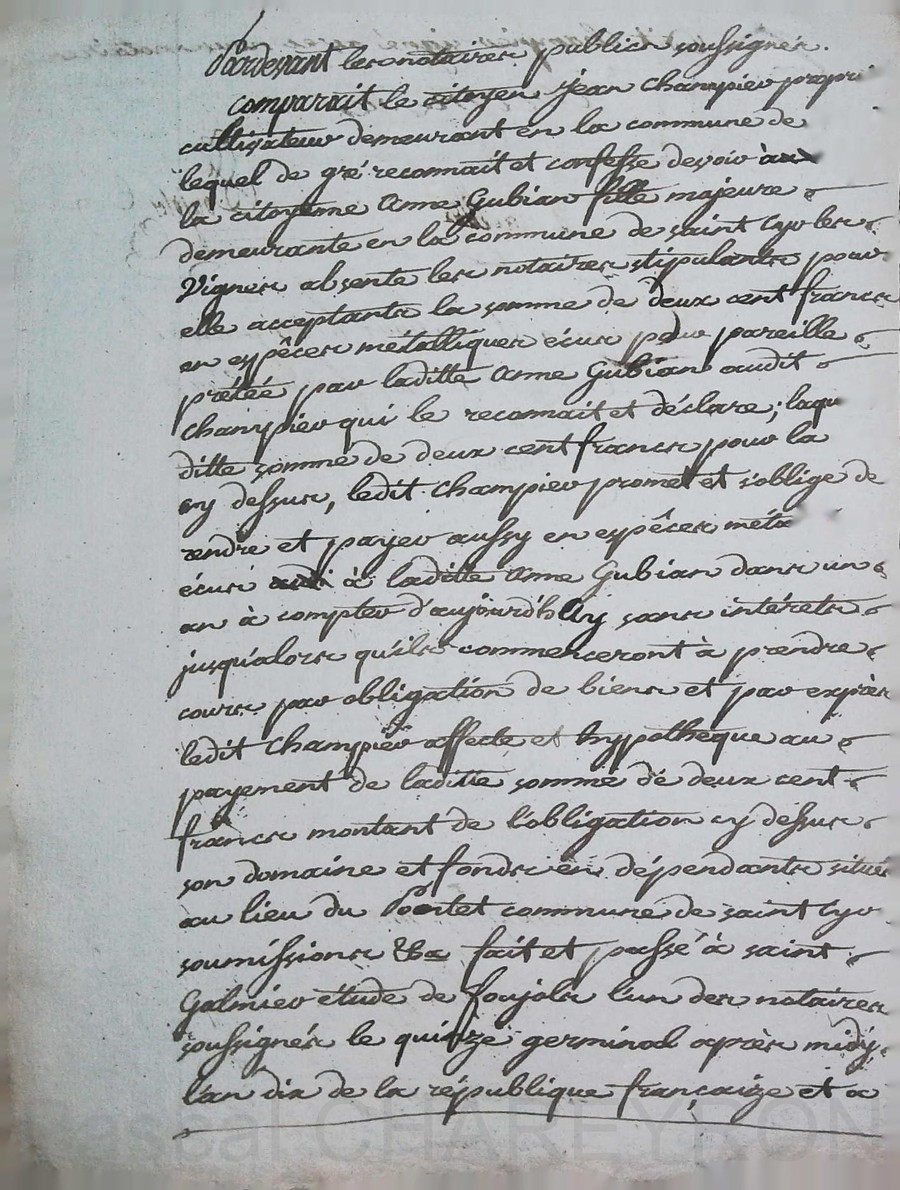 Pardevant les notaires publics soussignés.
comparait le citoyen jean Champier propri
cultivateur demeurant en la commune de
lequel de gré reconnait et confesse devoir à
la citoyenne Anne Gubian fille majeure
demeurante en la commune de saint Cyr les
Vignes absente les notaires stipulants pour
elle acceptants la somme de deux cent francs
en espêces métalliques écus pour pareille
prétée par laditte Anne Gubian audit
Champier qui le reconnait et déclare; laqu
ditte somme de deux cent francs pour la
cy dessus, ledit Champier promet et s'oblige de
rendre et payer aussy en espêces méta
écus à laditte Anne Gubian dans un
an à compter d'aujourd'huy sans intérets
jusqu'alors qu'ils commenceront à prendre
cours par obligation de biens et par exprès
ledit Champier affecte et hypothèque au
payement de laditte somme de deux cent
francs montant de l'obligation cy dessus
son domaine et fonds en dépendants situés
au lieu du Pontet commune de saint Cyr
soumissions &a fait et passé à saint
Galmier étude de foujols l'un des notaires
soussignés le quinze germinal après midy
l'an dix de la république françaize et a
Pascal CHAREYRON